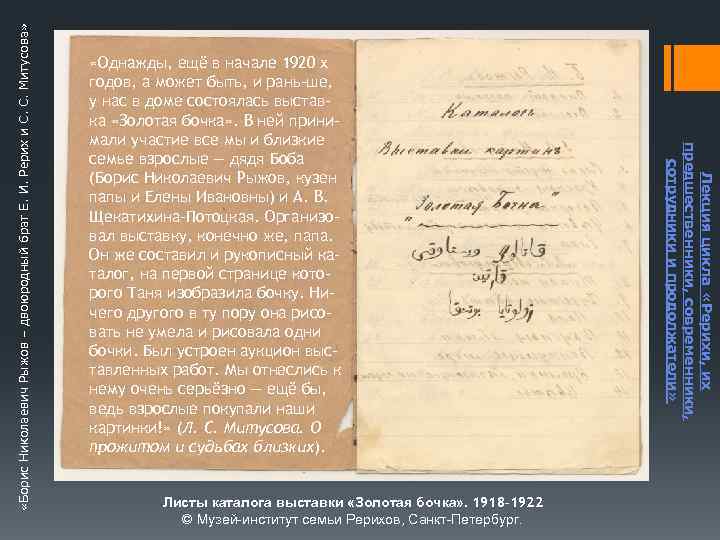 «Борис Николаевич Рыжов – двоюродный брат Е. И. Рерих и С. С. Митусова»
«Однажды, ещё в начале 1920 х
годов, а может быть, и рань-ше,
у нас в доме состоялась выстав-
ка «Золотая бочка» . В ней прини-
мали участие все мы и близкие
семье взрослые — дядя Боба
(Борис Николаевич Рыжов, кузен
папы и Елены Ивановны) и А. В.
Щекатихина-Потоцкая. Организо-
вал выставку, конечно же, папа.
Он же составил и рукописный ка-
талог, на первой странице кото-
рого Таня изобразила бочку. Ни-
чего другого в ту пору она рисо-
вать не умела и рисовала одни
бочки. Был устроен аукцион выс-
тавленных работ. Мы отнеслись к
нему очень серьёзно — ещё бы,
ведь взрослые покупали наши
картинки!» (Л. С. Митусова. О
прожитом и судьбах близких).
Каталогъ
Выставки картинъ
„Золотая Бочка"
Лекция цикла «Рерихи, их
предшественники, современники,
сотрудники и продолжатели»
Листы каталога выставки «Золотая бочка» . 1918-1922
© Музей-институт семьи Рерихов, Санкт-Петербург.